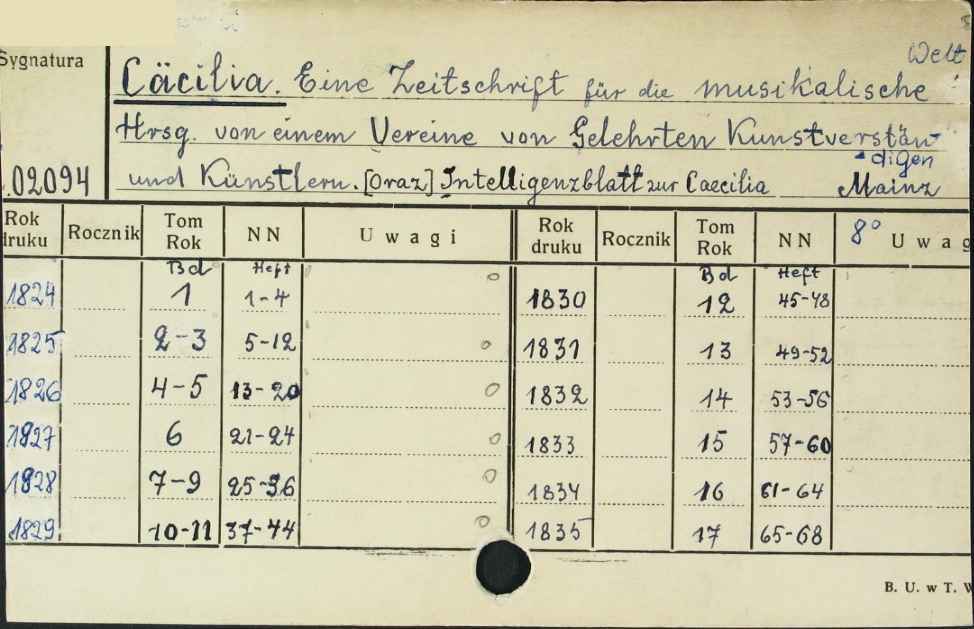 Welt
Sygnatura
Cäcilia. Eine Zeitschrift für die musikalische !
Hrsg. von einem Vereine von Gelehrten Kunstverstän-
digen
02094 und Künstlern. [Oraz] Intelligenzblatt zur Caecilia Mainz
Rok druku Rocznik Tom Rok NN Uwagi Rok druku Rocznik Tom Rok NN 8° Uwag
Bd Heft Bd Heft
1824 1 1-4 1830 12 45-48
1825 2-3 5-12 1831 13 49-52
1826 4-5 13-20 1832 14 53-56
1827 6 21-24 1833 15 57-60
1828 7-9 25-36 1834 16 61-64
1829 10-11 37-44 1835 17 65-68
B. U. w T.